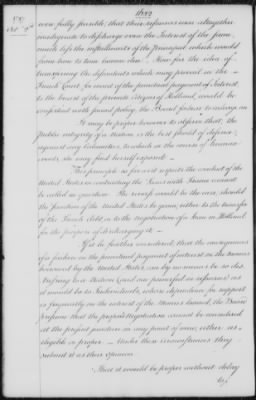 even fully possible, that their resources were altogether
inadequate to discharge even the Interest of the sum,
much less the installments of the Principal which would
from time to time become due. Nor for the idea of
transferring the discontents which may prevail in the
French Court, for want of the punctual payment of Interest
to the breast of the private Citizens of Holland, would be
consistent with sound policy, the Board forbear to enlarge on
It may be proper however to observe that the
public integrity of a Nation is the best shield of defence
against any Calamities, to which in the course of human
events, she may find herself exposed
This principle so far as it regards the conduct of the
United States in contracting the Loans with France cannot
be called in question. The reverse would be the case, should
the sanction of the United States be given, either to the transfer
of the French debt, or to the negotiation of a Loan in Holland
for the purpose of discharging it
If it be further considered that the consequences
of a failure in the punctual payment of interest on the Monies
borrowed by the United States, can by no means be so
to a Nation (and one powerful in resources) as
it would be to Individuals, whose dependence for support
is frequently on the interest of the Monies loaned, the Board
presume that the proposed negotiation cannot be considered
at the present juncture in any point of view, either as
eligible or proper. Under these circumstances they
submit it as their opinion
That it would be proper without delay
to